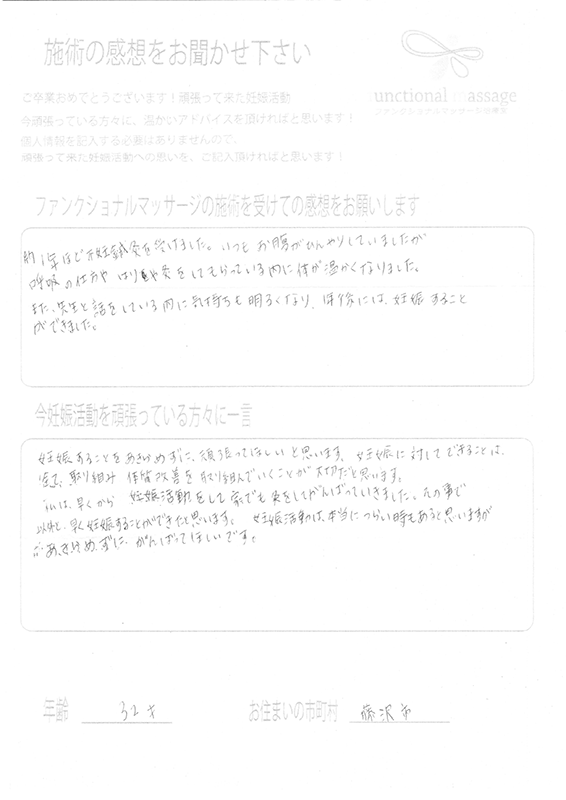 施術の感想をお聞かせ下さい
unctional massage
ファンクショナルマッサージ治療室
ご卒業おめでとうございます!頑張って来た妊娠活動
今頑張っている方々に、温かいアドバイスを頂ければと思います!
個人情報を記入する必要はありませんので、
頑張って来た妊娠活動への思いを、ご記入頂ければと思います!
ファンクショナルマッサージの施術を受けての感想をお願いします
約1年ほど不妊鍼灸を受けました。いつもお腹がひんやりしていましたが
呼吸の仕方やはりや灸をしてもらっている内に体が温かくなりました。
また、先生と話をしている内に気持ちも明るくなり、1年後には、妊娠すること
ができました。
今妊娠活動を頑張っている方々に一言
妊娠することをあきらめずに、頑張ってほしいと思います。妊娠に対してできることは、
全て、取り組み 体質改善を取り組んでいくことが大切だと思います。
私は、早くから 妊娠活動をして家でも灸をしてがんばっていきました。その事で
以外と、早く妊娠することができたと思います。 妊娠活動は、本当につらい時もあると思いますが
あきらめずに、がんばってほしいです。
年齢 32才
お住まいの市町村 藤沢市